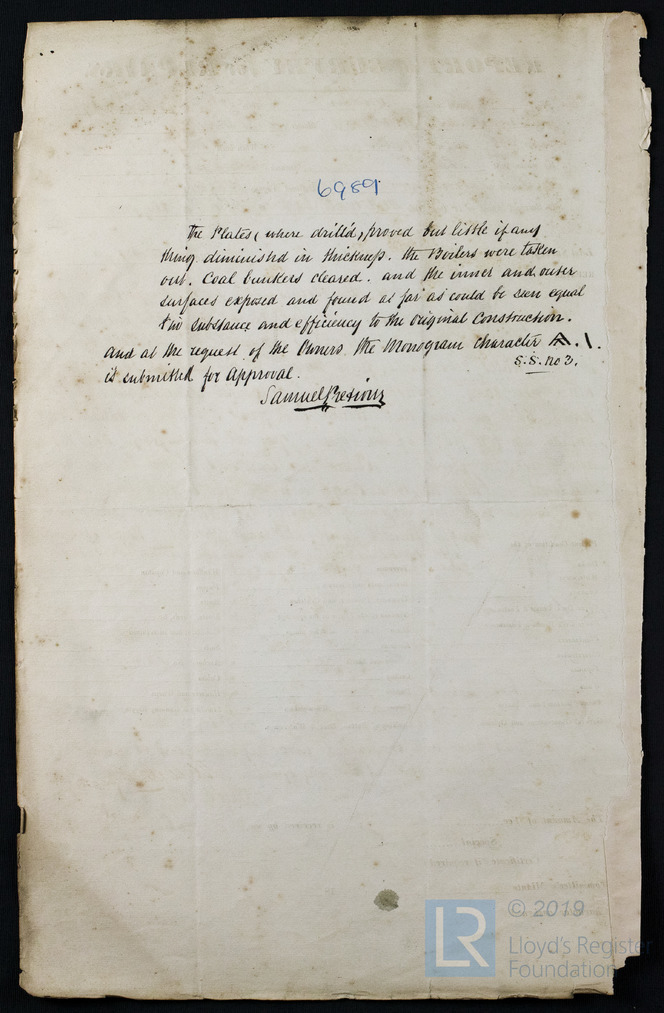 6989
The Plates (where drill'd) proved but little if any
thing diminished in thickness. the Boilers were taken
out. Coal bunkers cleared. and the inner and outer
surfaces exposed and found as far as could be seen equal
in substance and efficiency to the original Construction.
and at the request of the Owners the Monogram character A.1.
S.S. No 3.
is submitted for Approval.
Samuel Pretious
LR © 2019
Lloyd's Register
Foundation